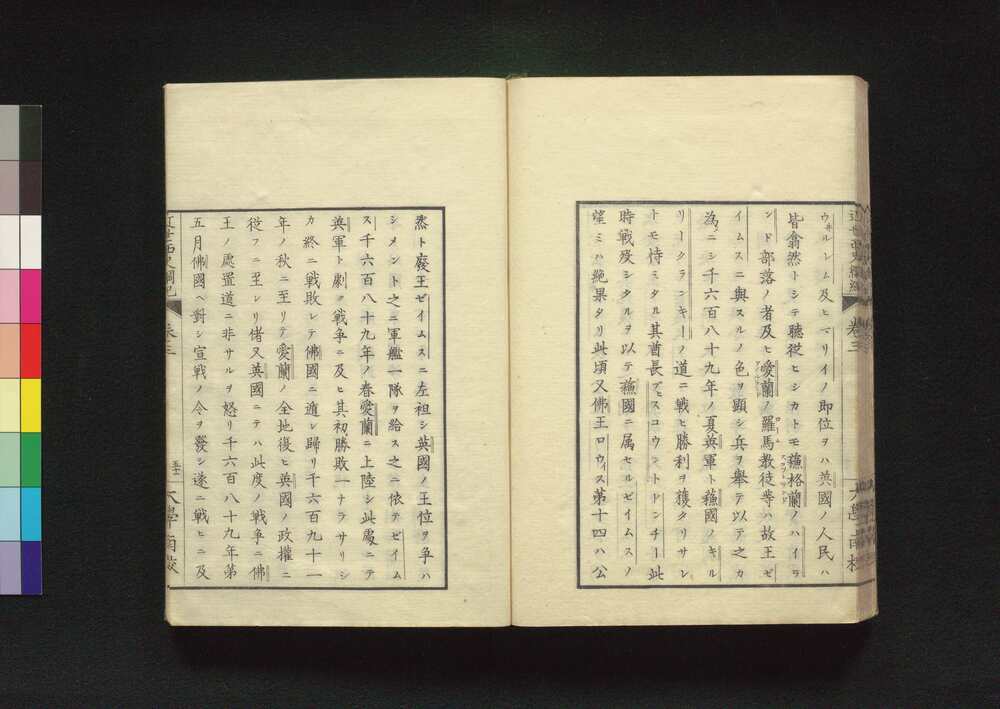 ウ井ルレム及ヒマリイノ即位ヲハ英國ノ人民ハ
皆翕然トシテ聽從ヒシカトモ蘓格蘭ノハイラ
ンド部落ノ者及ヒ愛蘭ノ羅馬教徒等ハ故王ゼ
イムスニ與スルノ色ヲ顯シ兵ヲ舉テ以テ之カ
為ニシ千六百八十九年ノ夏英軍ト蘓國ノキル
リークランキーノ道ニ戰ヒ勝利ヲ獲タリサレ
トモ恃ミタル其酋長ブヒスコウントドンチー此
時戰歿シタルヲ以テ蘓國ニ属セルゼイムスノ
望ミハ絶果タリ此頃又佛王ロウィス第十四ハ公
然ト廢王ゼイムスニ左袒シ英國ノ王位ヲ爭ハ
シメント之ニ軍艦一隊ヲ給ス之ニ依テゼイム
ス千六百八十九年ノ春愛蘭ニ上陸シ此處ニテ
英軍ト劇ク戰爭ニ及ヒ其初勝敗一ナラサリシ
カ終ニ戰敗レテ佛國ニ遁レ歸リ千六百九十一
年ノ秋ニ至リテ愛蘭ノ全地復ヒ英國ノ政權ニ
從フニ至レリ偖又英國ニテハ此度ノ戰爭ニ佛
王ノ處置道ニ非サルヲ怒リ千六百八十九年第
五月佛國ヘ對シ宣戰ノ令ヲ發シ遂ニ戰ヒニ及
卷三
大學南校